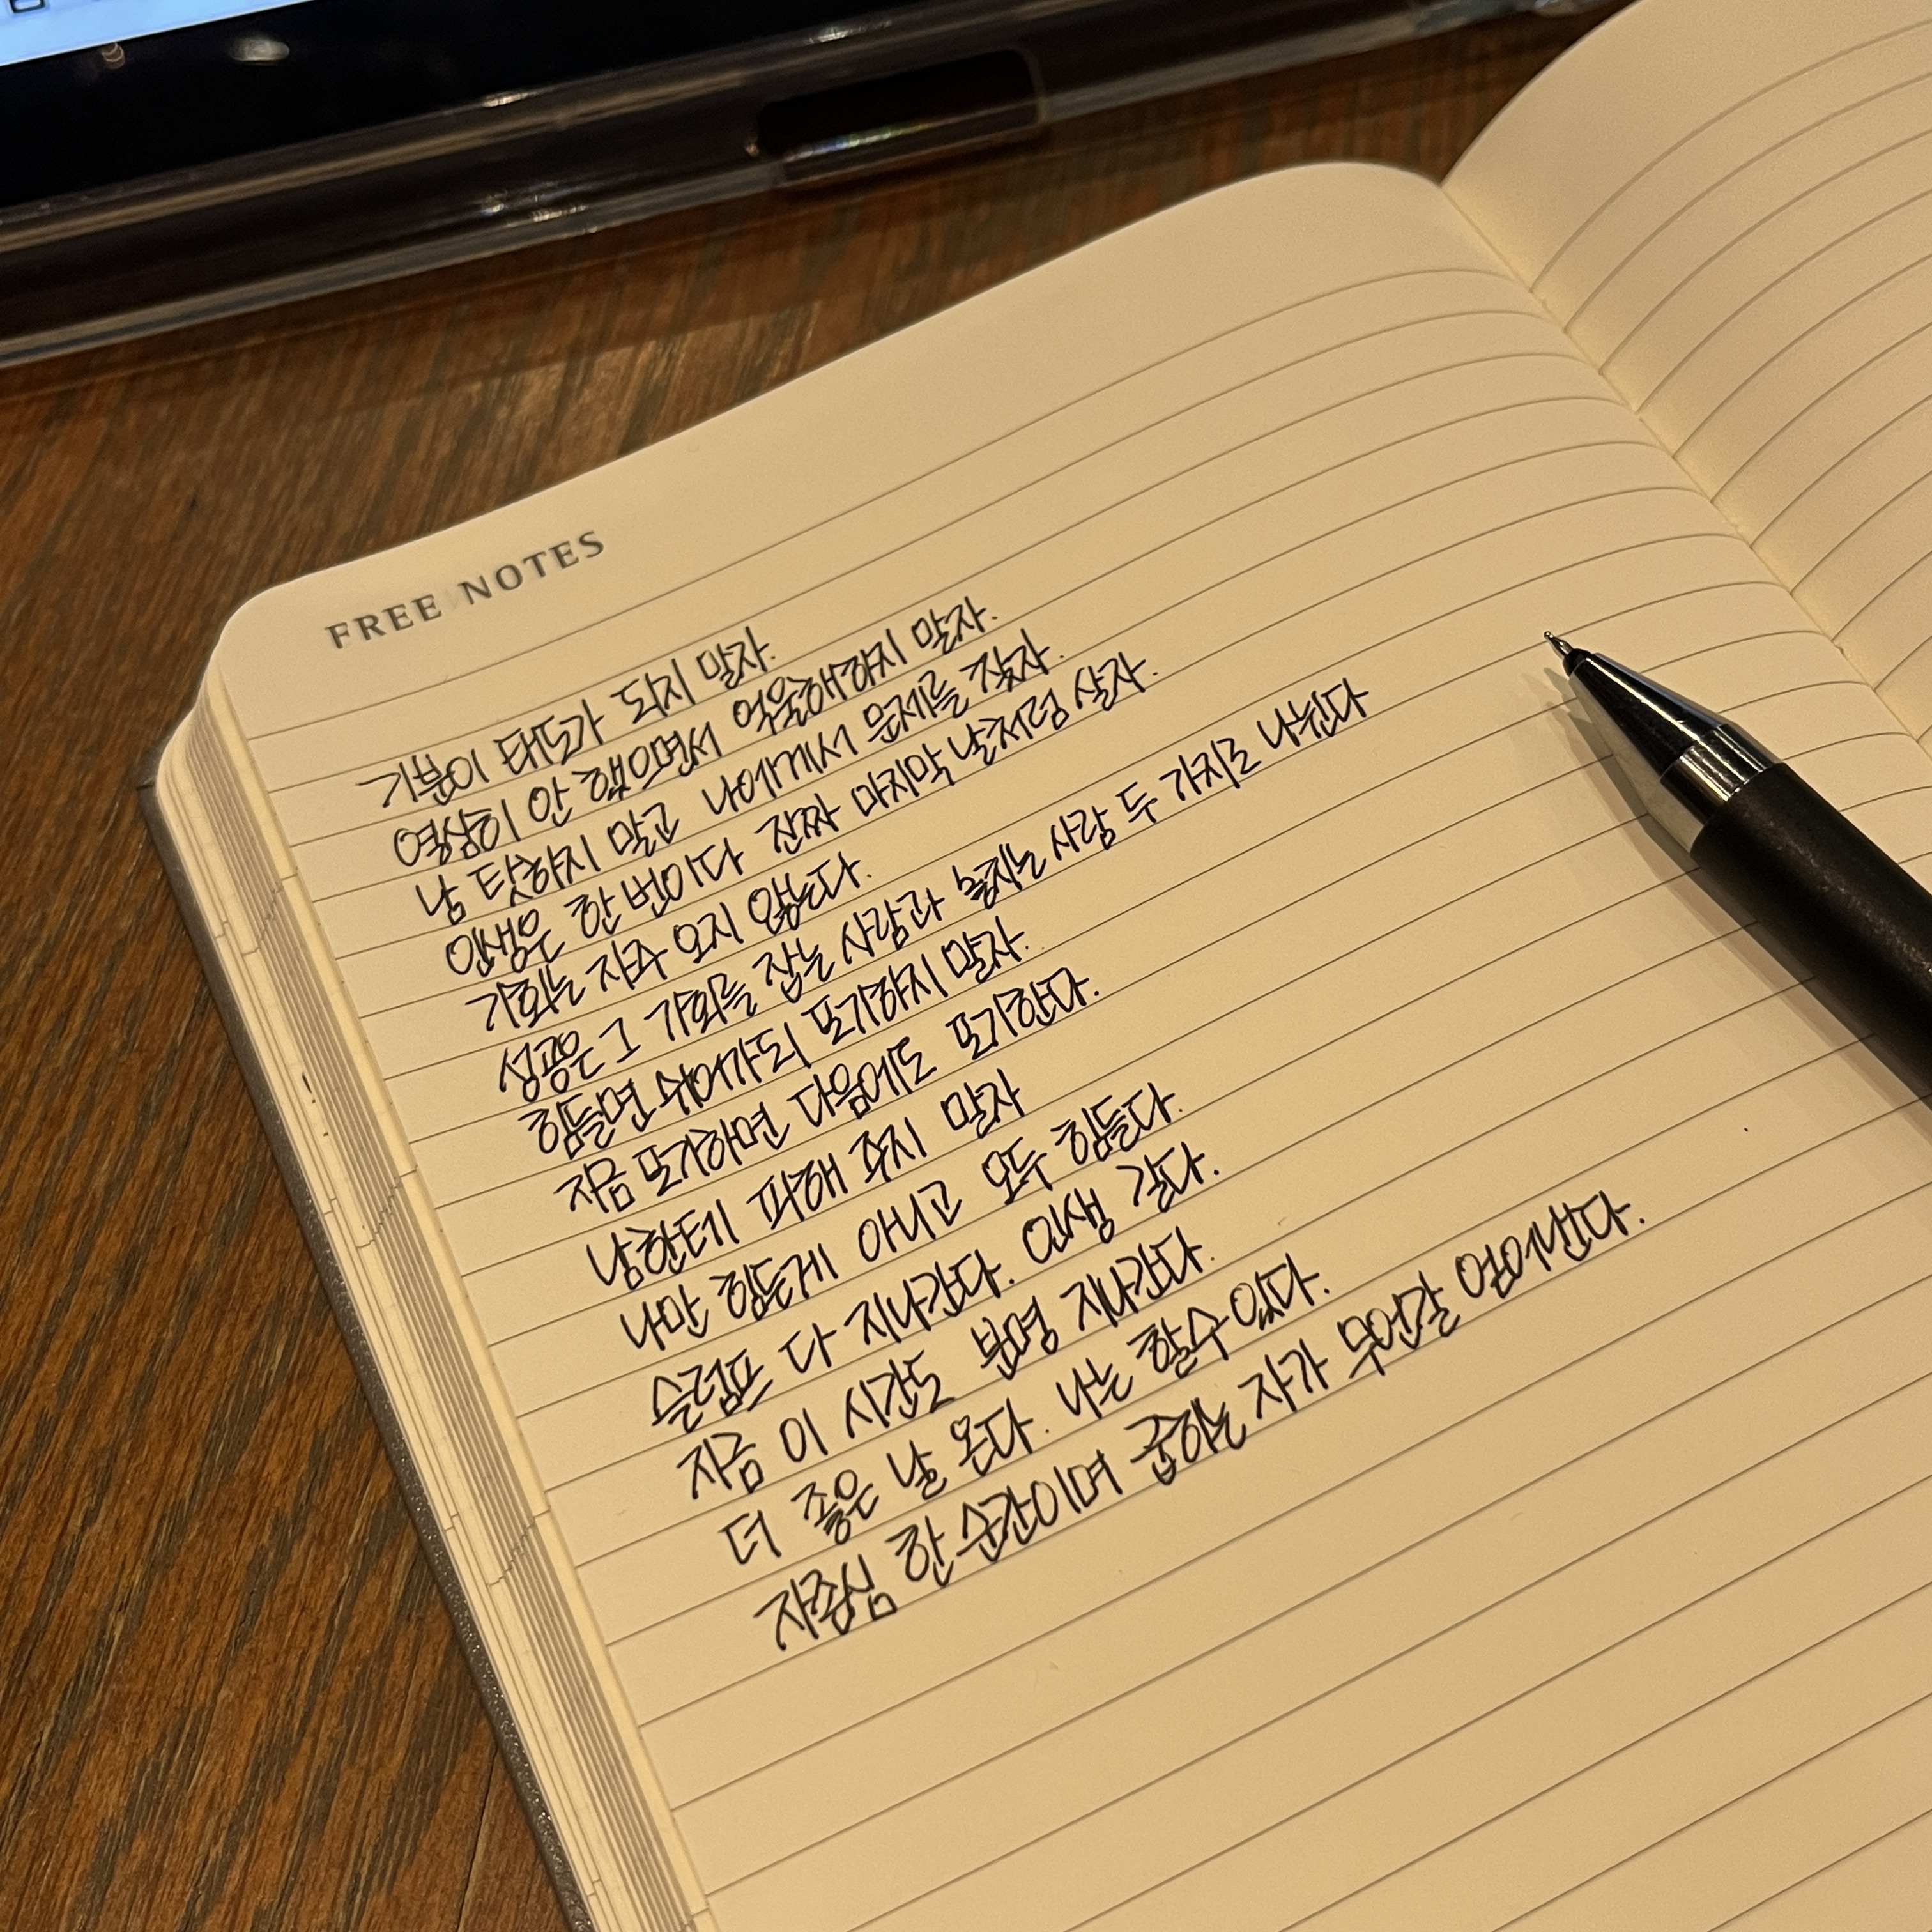 FREE NOTES
기분이 태도가 되지 말자.
열심히 안 했으면서 억울해하지 말자.
남 탓하지 말고 나에게서 문제를 찾자.
인생은 한 번이다 진짜 마지막 날처럼 살자.
기회는 자주 오지 않는다.
성공은 그 기회를 잡는 사람과 놓치는 사람 두 가지로 나뉜다
힘들면 쉬어가되 포기하지 말자.
지금 포기하면 다음에도 포기한다.
남한테 피해 주지 말자
나만 힘든게 아니고 모두 힘들다.
슬럼프 다 지나간다. 인생 길다.
지금 이 시간도 분명 지나간다.
더 좋은 날 온다. 나는 할수있다.
자존심 한 순간이며 굽히는 자가 무언갈 얻어낸다.